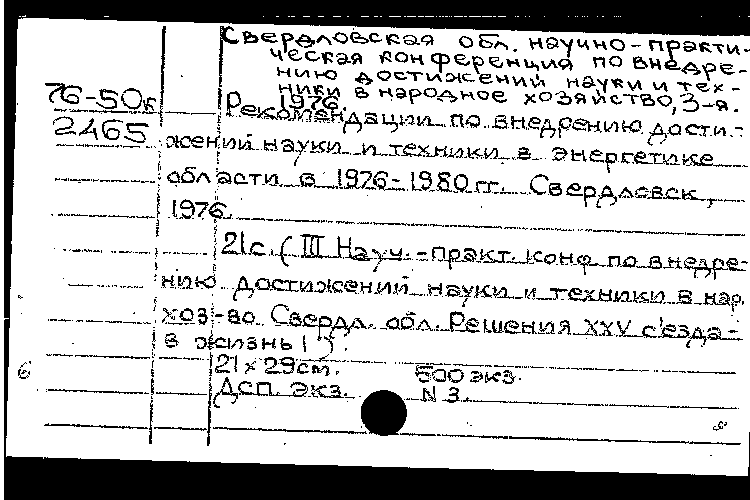 Свердловская обл. научно-практи-
ческая конференция по внедре-
нию достижений науки и тех-
ники в народное хозяйство, 3-я.
1976.
76-50к
2465
Рекомендации по внедрению дости-
жений науки и техники в энергетике
области в 1976-1980гг. Свердловск,
1976.
21с. (III Науч.-практ. конф по внедре-
нию достижений науки и техники в нар.
хоз-во Свердл. обл. Решения XXV съезда-
в жизнь!).
21 x 29см. 500 экз.
ДСП. экз. N 3.
6